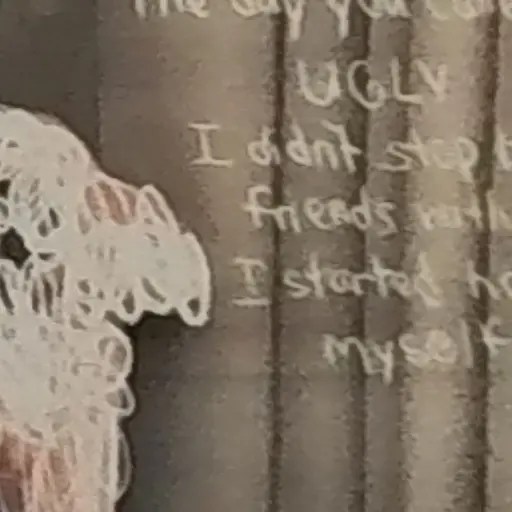 The day you
UGLY
I didn't stop
friends with
I started
myself